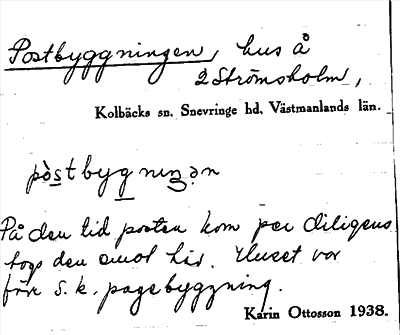 Postbyggningen, hus å
2 Strömsholm,
Kolbäcks sn. Snevringe hd. Västmanlands län.
pòstbygniŋən
På den tid posten kom per diligens
togs den emot här. Huset var
förr s.k. pagebyggning.
Karin Ottosson 1938.